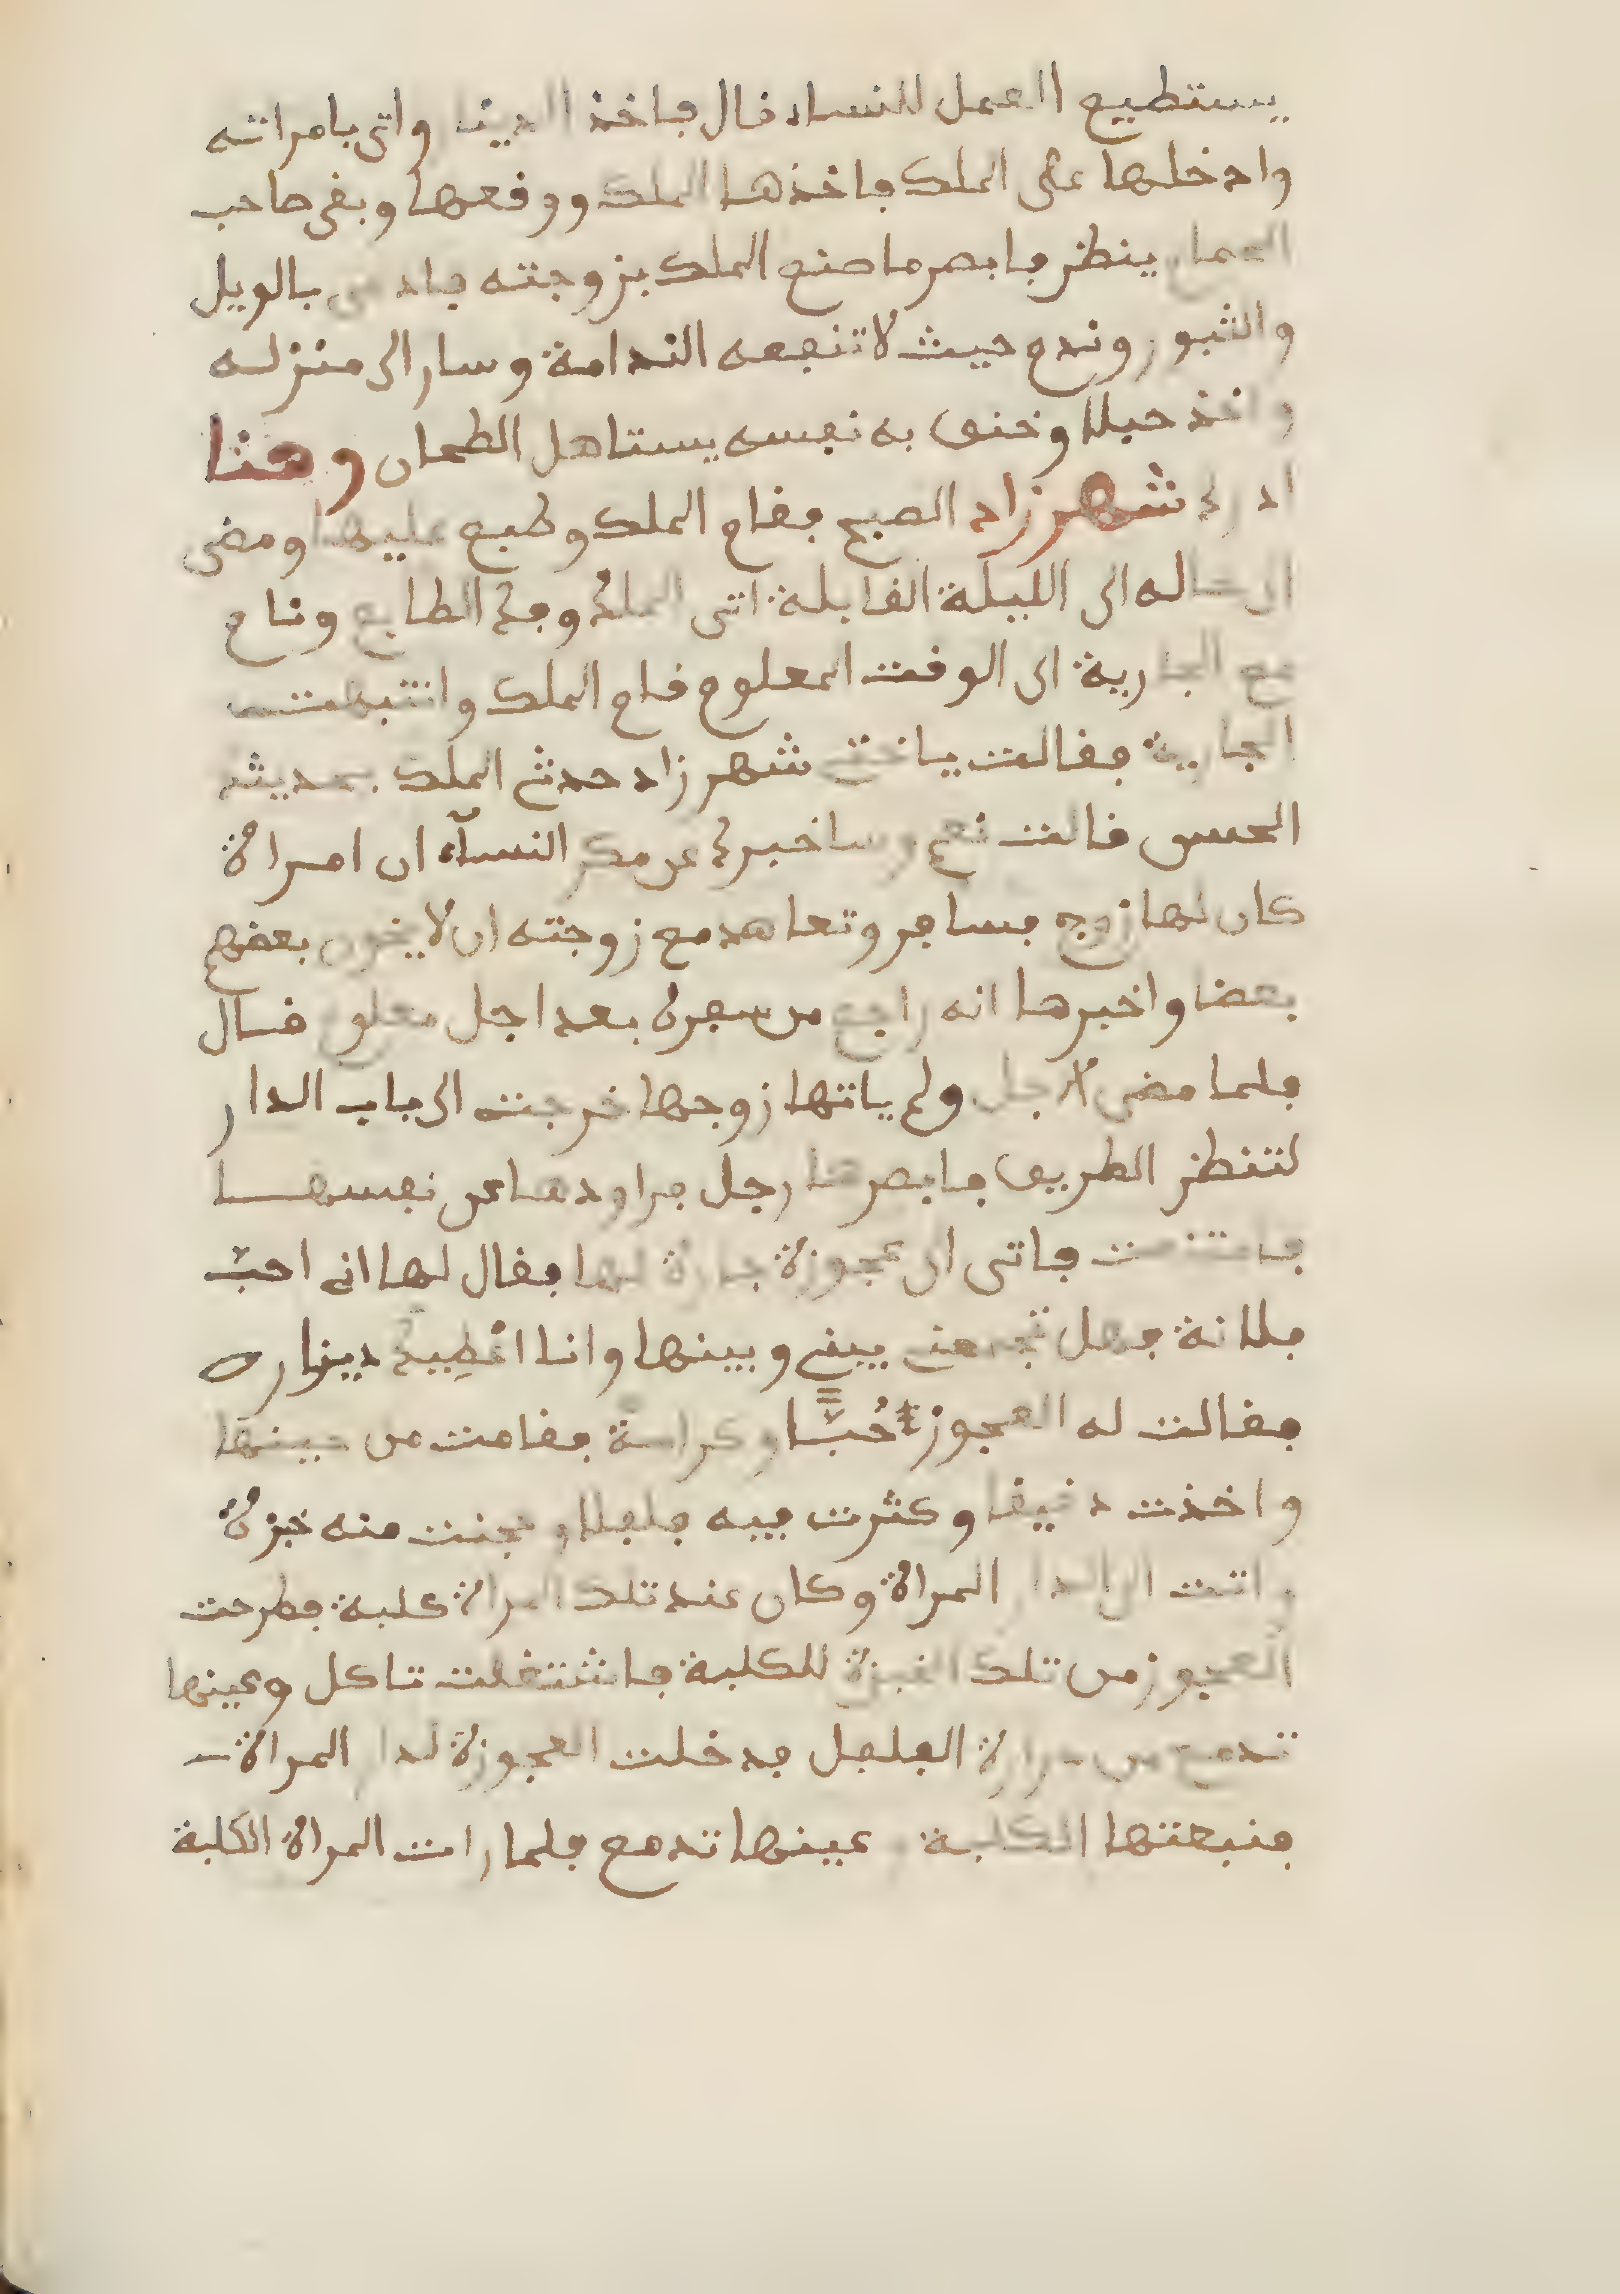 يستطيع العمل للنساء قال فاخذ الدينا واتى بامراته
وادخلها على الملك فاخذها الملك ووقعها وبقى صاحب
الحمار ينظر فابصر ما صنع الملك بزوجته فادعى بالويل
والثبور وندم حيث لا تنفعه الندامة وسار الى منزله
واخذ حبلا وخنق به نفسه يستاهل الطحان وهنا
ادرك شهرزاد الصبح فقام الملك وطبع عليها ومضى
الى حاله الى الليلة القابلة اتى الملك وفك الطابع ونام
مع الجارية الى الوقت المعلوم قام الملك وانتبهت
الجارية فقالت ياختي شهرزاد حدث الملك بحديثك
الحسن قالت نعم وساخبرك عن مكر النسآء ان امراة
كان لها زوج فسافر وتعاهد مع زوجته ان لا يخون بعضهم
بعضا واخبرها انه راجع من سفره بعد اجل معلوم قال
فلما مضى الاجل ولم ياتها زوجها خرجت الى باب الدار
لتنظر الطريق فابصرها رجل فراودها عن نفسها
فامتنعت فاتى الى عجوزة جارة لها فقال لها اني احبّ
فلانة فهل تجمعني بيني وبينها وانا اعْطِيكْ دينارا
فقالت له العجوز حُبًّا وكرامة فقامت من حينها
واخذت دقيقا وكثرت فيه فلفلا وعجنت منه خبزة
واتت الى الدار المراة وكان عند تلك المراة كلبة فطرحت
العجوز من تلك الخبزة للكلبة فاشتغلت تاكل وعينها
تدمع من حرارة الفلفل فدخلت العجوزة لدار المراة
فتبعتها الكلبة وعينها تدمع فلما رات المراة الكلبة